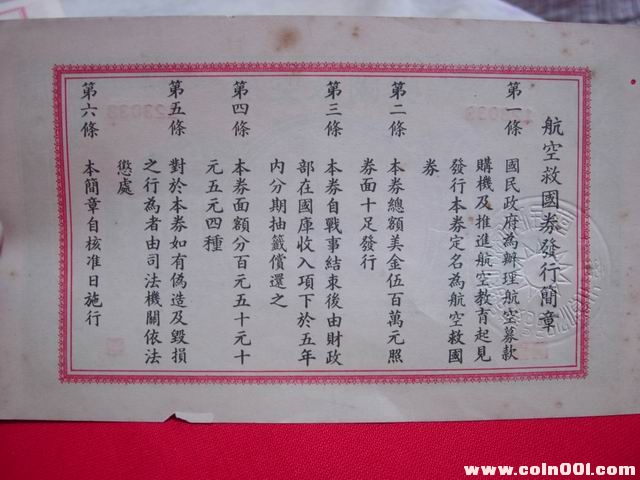 航空救國券發行簡章
第一條 國民政府為辦理航空募款
購機及推進航空教育起見
發行本券定名為航空救國
券
第二條 本券總額美金伍百萬元照
券面十足發行
第三條 本券自戰事結束後由財政
部在國庫收入項下於五年
內分期抽籤償還之
第四條 本券面額分百元五十元十
元五元四種
第五條 對於本券如有偽造及毀損
之行為者由司法機關依法
懲處
第六條 本簡章自核准日施行
www.coln001.com